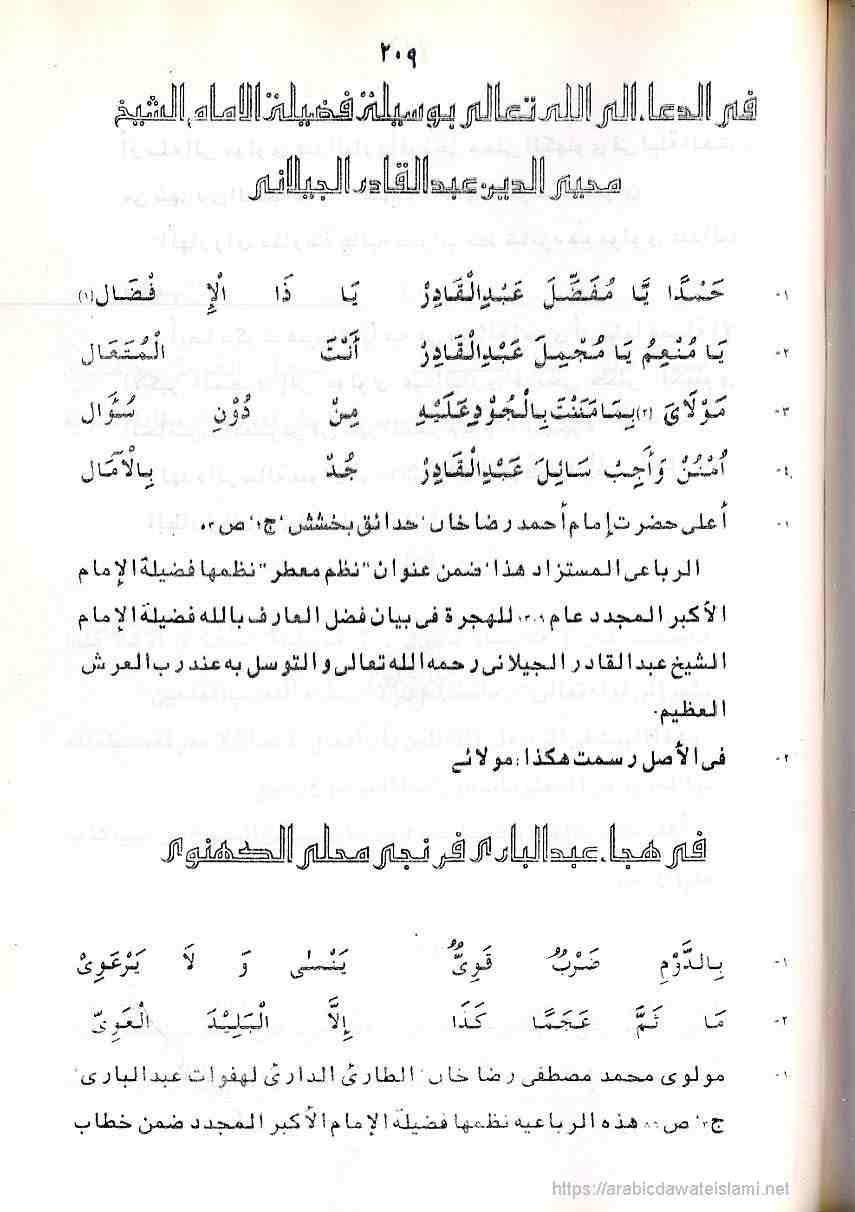 ٢٠٩
في الدعاء إلى الله تعالى بوسيلة فضيلة الإمام الشيخ
محيي الدين عبد القادر الجيلاني
٠١ حَمْدًا يَّا مُفَضِّلَ عَبْدِالْقَادِرْ يَا ذَا الْإِ فْضَال(١)
٠٢ يَا مُنْعِمُ يَا مُجْمِلَ عَبْدِالْقَادِرْ أَنْتَ الْمُتَعَال
٠٣ مَوْلَايَ (٢) بِمَا مَنَنْتَ بِالْجُوْدِ عَلَيْهِ مِنْ دُوْنِ سُؤَال
٠٤ اُمْنُنْ وَأَجِبْ سَائِلَ عَبْدِالْقَادِرْ جُدْ بِالْآمَال
٠١ أعلى حضرت إمام أحمد رضا خاں ‘حدائق بخشش ‘ج١‘ ص٠٣
الرباعى المستزاد هذا‘ ضمن عنوان "نظم معطر" نظمها فضيلة الإمام
الأكبر المجدد عام ١٣٠٩ للهجرة فى بيان فضل العارف بالله فضيلة الإمام
الشيخ عبد القادر الجيلانى رحمه الله تعالى و التوسل به عند رب العرش
العظيم.
٠٢ فى الأصل رسمت هكذا: مولائے
في هجاء عبد الباري فرنجي محلي الكهنوي
٠١ بِالدَّوْمِ ضَرْبٌ قَوِيٌّ يَنْسٰى وَ لَا يَرْعَوِيْ
٠٢ مَا ثَمَّ عَجَمًا كَذَا إِلَّا الْبَلِيْدَ الْغَوِيّ
٠١ مولوى محمد مصطفى رضا خاں‘ الطارئ الدارئ لهفوات عبد البارى‘
ج٣‘ ص هذه الرباعيه نظمها فضيلة الإمام الأكبر المجدد ضمن خطاب
https://arabicdawateislami.net